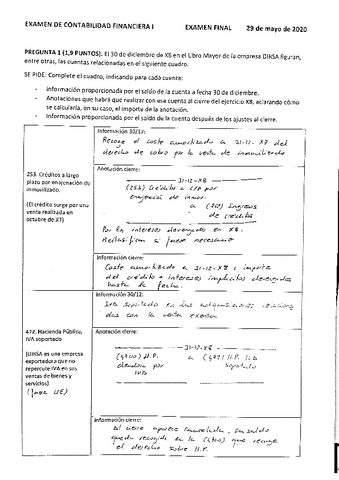 EXAMEN DE CONTABILIDAD FINANCIERA I EXAMEN FINAL 29 de mayo de 2020
PREGUNTA 1 (1,9 PUNTOS). El 30 de diciembre de X8 en el Libro Mayor de la empresa DIRSA figuran,
entre otras, las cuentas relacionadas en el siguiente cuadro.
SE PIDE: Complete el cuadro, indicando para cada cuenta:
- Información proporcionada por el saldo de la cuenta a fecha 30 de diciembre.
- Anotaciones que habrá que realizar con esa cuenta al cierre del ejercicio X8, aclarando cómo
se calcularía, en su caso, el importe de la anotación.
- Información proporcionada por el saldo de la cuenta después de los ajustes al cierre.
Información 30/12:
Recoge el coste amortizado a 31-12-X7 del
derecho de cobro por la venta de inmovilizado
253. Créditos a largo
plazo por enajenación de
inmovilizado.
(El crédito surge por una
venta realizada en
octubre de X7)
Anotación cierre:
31-12-X8
(253) Crédito a L/P por
enajenación de inmov.
a (762) Ingresos
de créditos
Por los intereses devengados en X8.
Reclasificar si fuese necesario
Información cierre:
Coste amortizado a 31-12-X8 : importe
del crédito + intereses implícitos devengados
hasta la fecha.
Información 30/12:
IVA soportado en las adquisiciones relaciona
das con la venta
472. Hacienda Pública,
IVA soportado
(DIRSA es una empresa
exportadora que no
repercute IVA en sus
ventas de bienes y
servicios)
(fuera UE)
Anotación cierre:
31-12-X8
(4700) H.P. a (472) H.P. IVA
deudora por soportado
IVA
Información cierre:
Al cierre aparece cancelada, su saldo
queda recogido en la (4700) que recoge
el derecho sobre H.P.